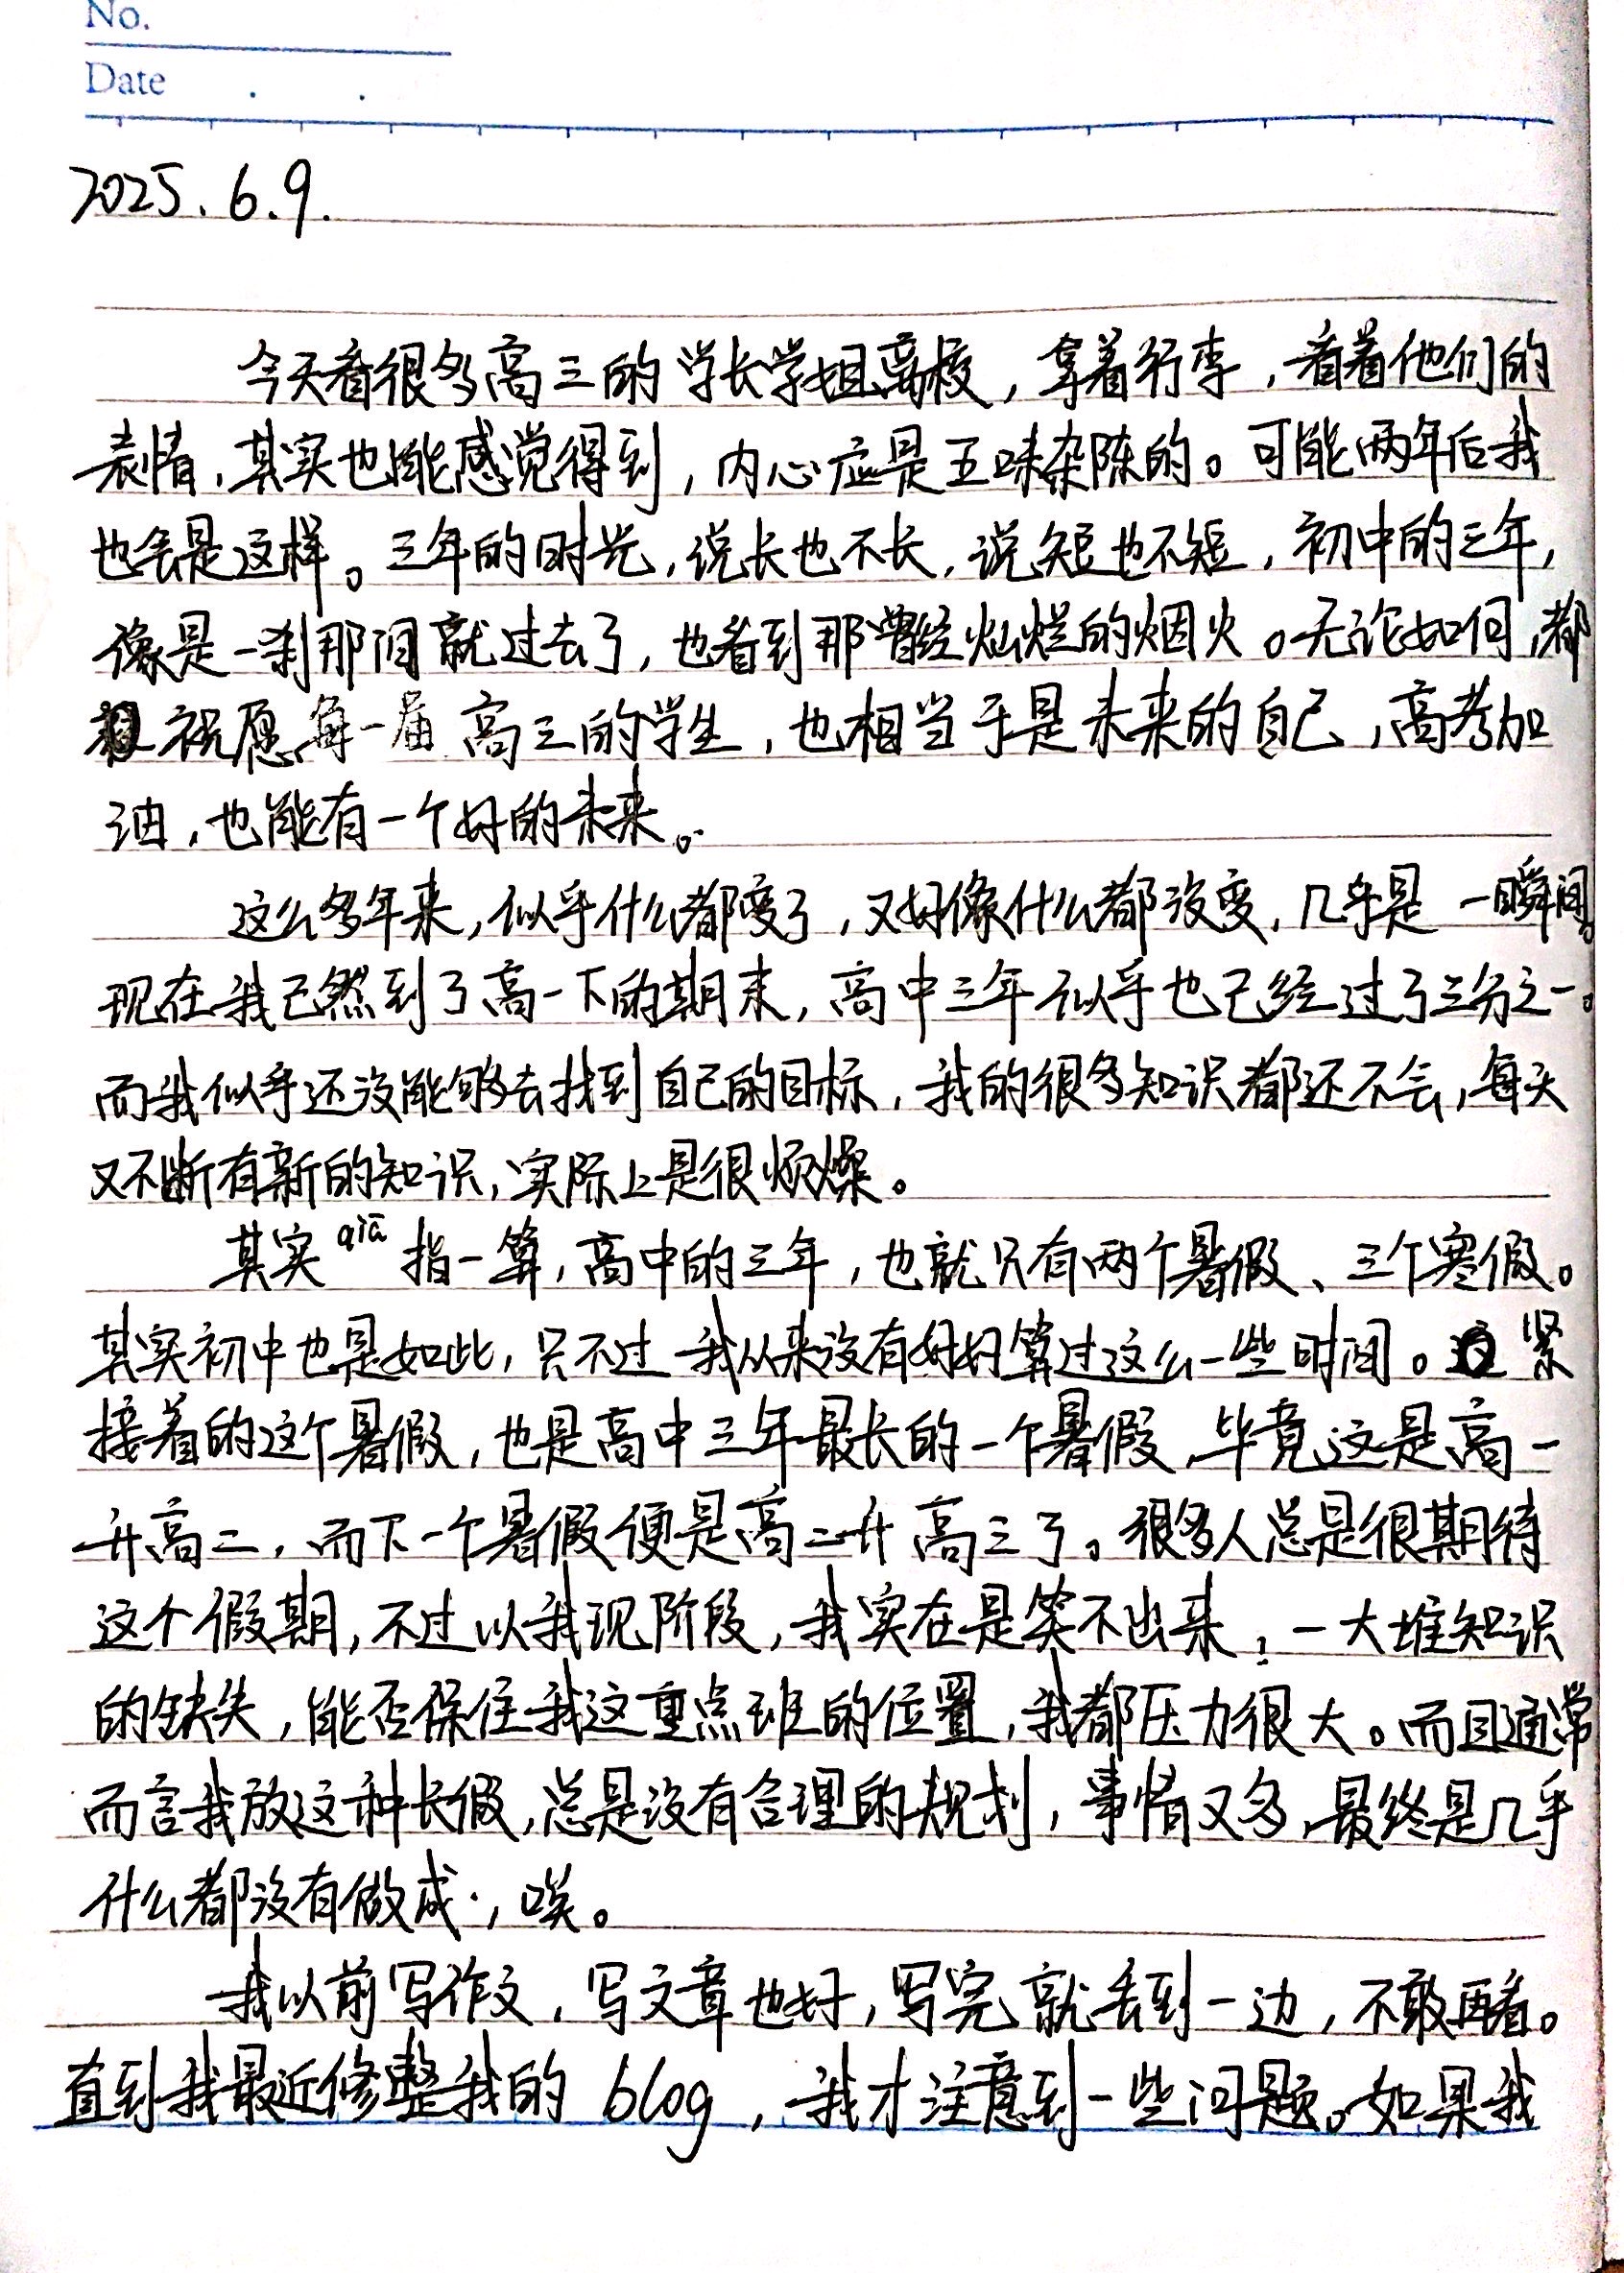 No.
Date . .
2025.6.9.
今天看很多高三的学长学姐离校，拿着行李，看着他们的
表情，其实也能感觉得到，内心应是五味杂陈的。可能两年后我
也会是这样。三年的时光，说长也不长，说短也不短，初中的三年，
像是一刹那间就过去了，也看到那曾经灿烂的烟火。无论如何，都
祝愿每一届高三的学生，也相当于是未来的自己，高考加
油，也能有一个好的未来。
这么多年来，似乎什么都变了，又好像什么都没变，几乎是一瞬间。
现在我已然到了高一下的期末，高中三年似乎也已经过了三分之一。
而我似乎还没能够去找到自己的目标，我的很多知识都还不会，每天
又不断有新的知识，实际上是很烦燥。
其实qiā指一算，高中的三年，也就只有两个暑假、三个寒假。
其实初中也是如此，只不过我从来没有好好算过这么一些时间。紧
接着的这个暑假，也是高中三年最长的一个暑假，毕竟这是高一
升高二，而下一个暑假便是高二升高三了。很多人总是很期待
这个假期，不过以我现阶段，我实在是笑不出来，一大堆知识
的缺失，能否保住我这重点班的位置，我都压力很大。而且通常
而言我放这种长假，总是没有合理的规划，事情又多，最终是几乎
什么都没有做成，唉。
我以前写作文，写文章也好，写完就丢到一边，不敢再看。
直到我最近修整我的blog，我才注意到一些问题。如果我